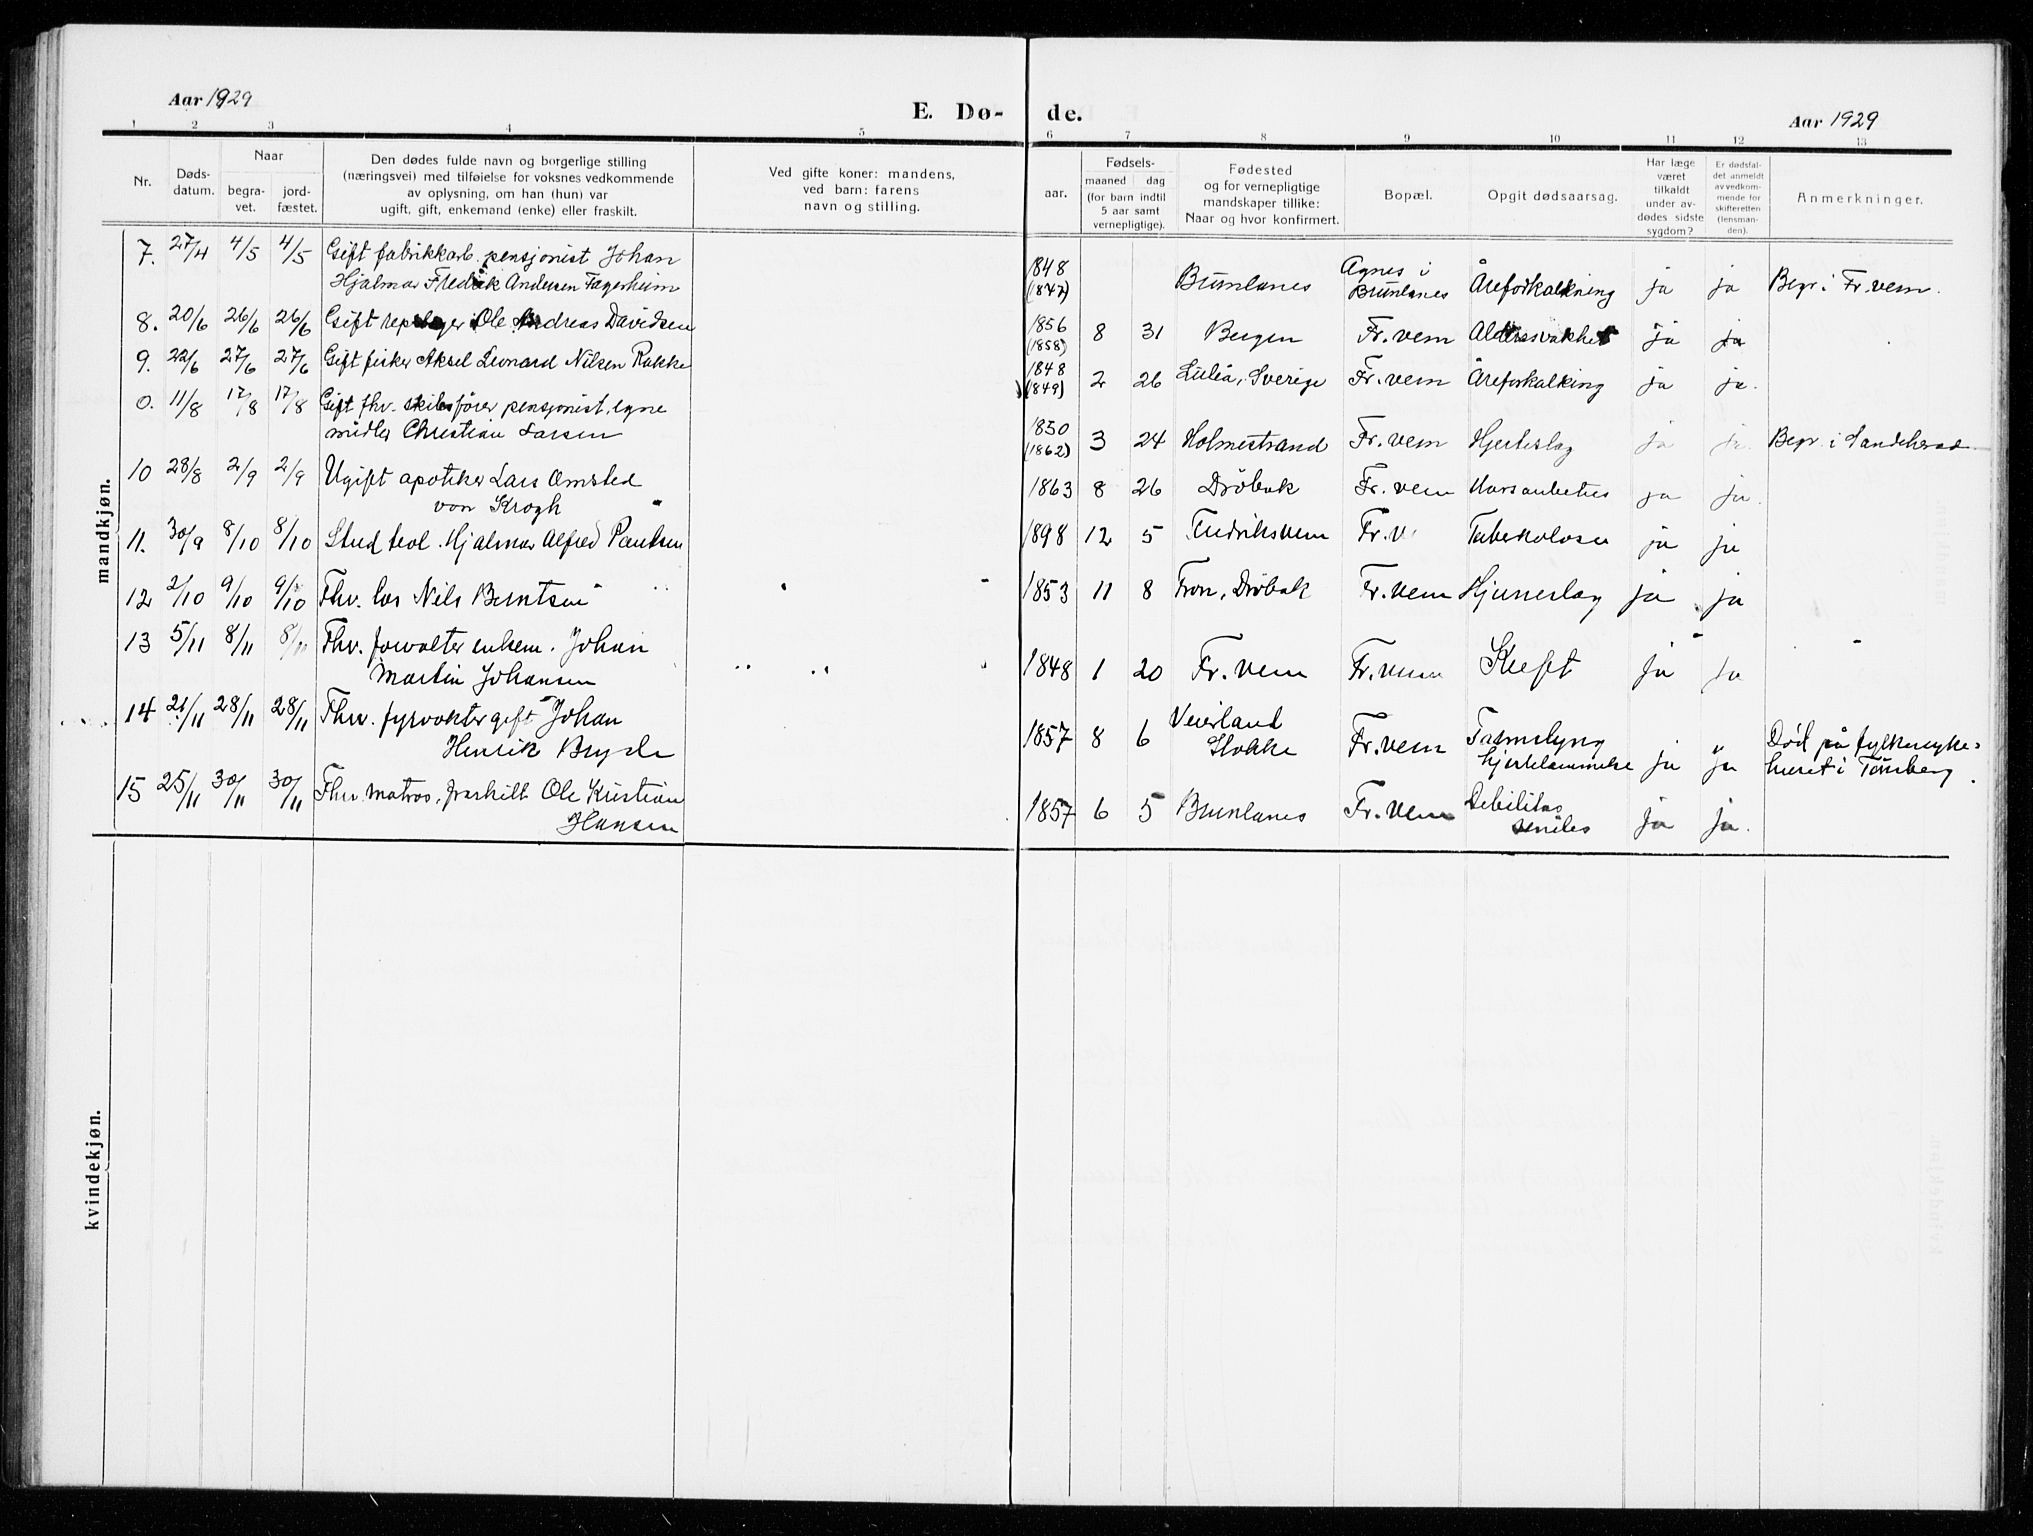 Aar 1929
E. Dø-
de.
Aar 1929
1 2 3 4 5 6 7 8 9 10 11 12 13
Nr.
Døds-
datum.
Naar
begra-
vet.
jord-
fæstet.
Den dødes fulde navn og borgerlige stilling
(næringsvei) med tilføielse for voksnes vedkommende
av oplysning, om han (hun) var
ugift, gift, enkemand (enke) eller fraskilt.
Ved gifte koner: mandens,
ved barn: farens
navn og stilling.
aar.
Fødsels-
maaned dag
(for barn indtil
5 aar samt
vernepligtige).
Fødested
og for vernepligtige
mandskaper tillike:
Naar og hvor konfirmert.
Bopæl.
Opgit dødsaarsag.
Har læge
været
tilkaldt
under av-
dødes sidste
sygdom?
Er dødsfal-
det anmeldt
av vedkom-
mende for
skifteretten
(lensman-
den).
Anmerkninger.
mandkjøn.
7. 27/4 4/5 4/5 Gift fabrikkarb. pensjonist Johan
Hjalmar Fredrik Andersen Fagerheim
1848
(1847)
Brunlanes
Agnes i
Brunlanes
Åreforkalkning ja ja Begr. i Fr.vern.
8. 20/6 26/6 26/6 Gift Ole Andreas Davidsen
1856
(1858)
8 31 Bergen Fr.vern Alderssvakhet ja ja
9. 22/6 27/6 27/6 Gift fisker Aksel Leonard Nilsen Rakke
1848
(1849)
2 26 Luleå, Sverige Fr.vern Åreforkalking ja ja.
0. 11/8 17/8 17/8 Gift fhv. skibsfører pensjonist, egne
midler Christian Larsen
1850
(1862)
3 24 Holmestrand Fr.vern Hjerteslag ja ja. Begr. i Sandeherad
10 28/8 2/9 2/9 Ugift apotiker Lars Omsted
von Krogh
1863 8 26 Drøbak Fr.vern ja ja
11. 30/9 8/10 8/10 Stud teol. Hjalmar Alfred Paulsen
1898 12 5 Fredriksvern Fr.v Tuberkolose ja ja
12 2/10 9/10 9/10 Fhv. los Nils Berntsen
1853 11 8 Fron, Drøbak Fr.vern ja ja
13 5/11 8/11 8/11 Fhv. forvalter enkem. Johan
Martin Johansen
1848 1 20 Fr.vern Fr.vern Kreft ja ja
14 21/11 28/11 28/11 Fhv. fyrvokter gift Johan
Henrik Bryde
1857 8 6
Veierland
Stokke
Fr.vern
hjertelammelse
ja ja
Død på fylkessyke-
huset i Tønsberg.
15 25/11 30/11 30/11 Fhv. matros, fraskilt Ole Kristian
Hansen
1857 6 5 Brunlanes Fr.vern
Debilitas
seniles
ja ja.
kvindekjøn.